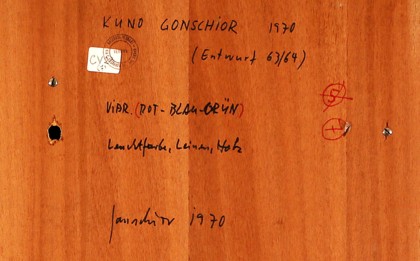 KUNO GONSCHIOR 1970
(Entwurf 63/64)
CV
ViBR. (ROT-BLAU-GRÜN)
Leuchtfarbe, Leinen, Holz
Gonschior 1970